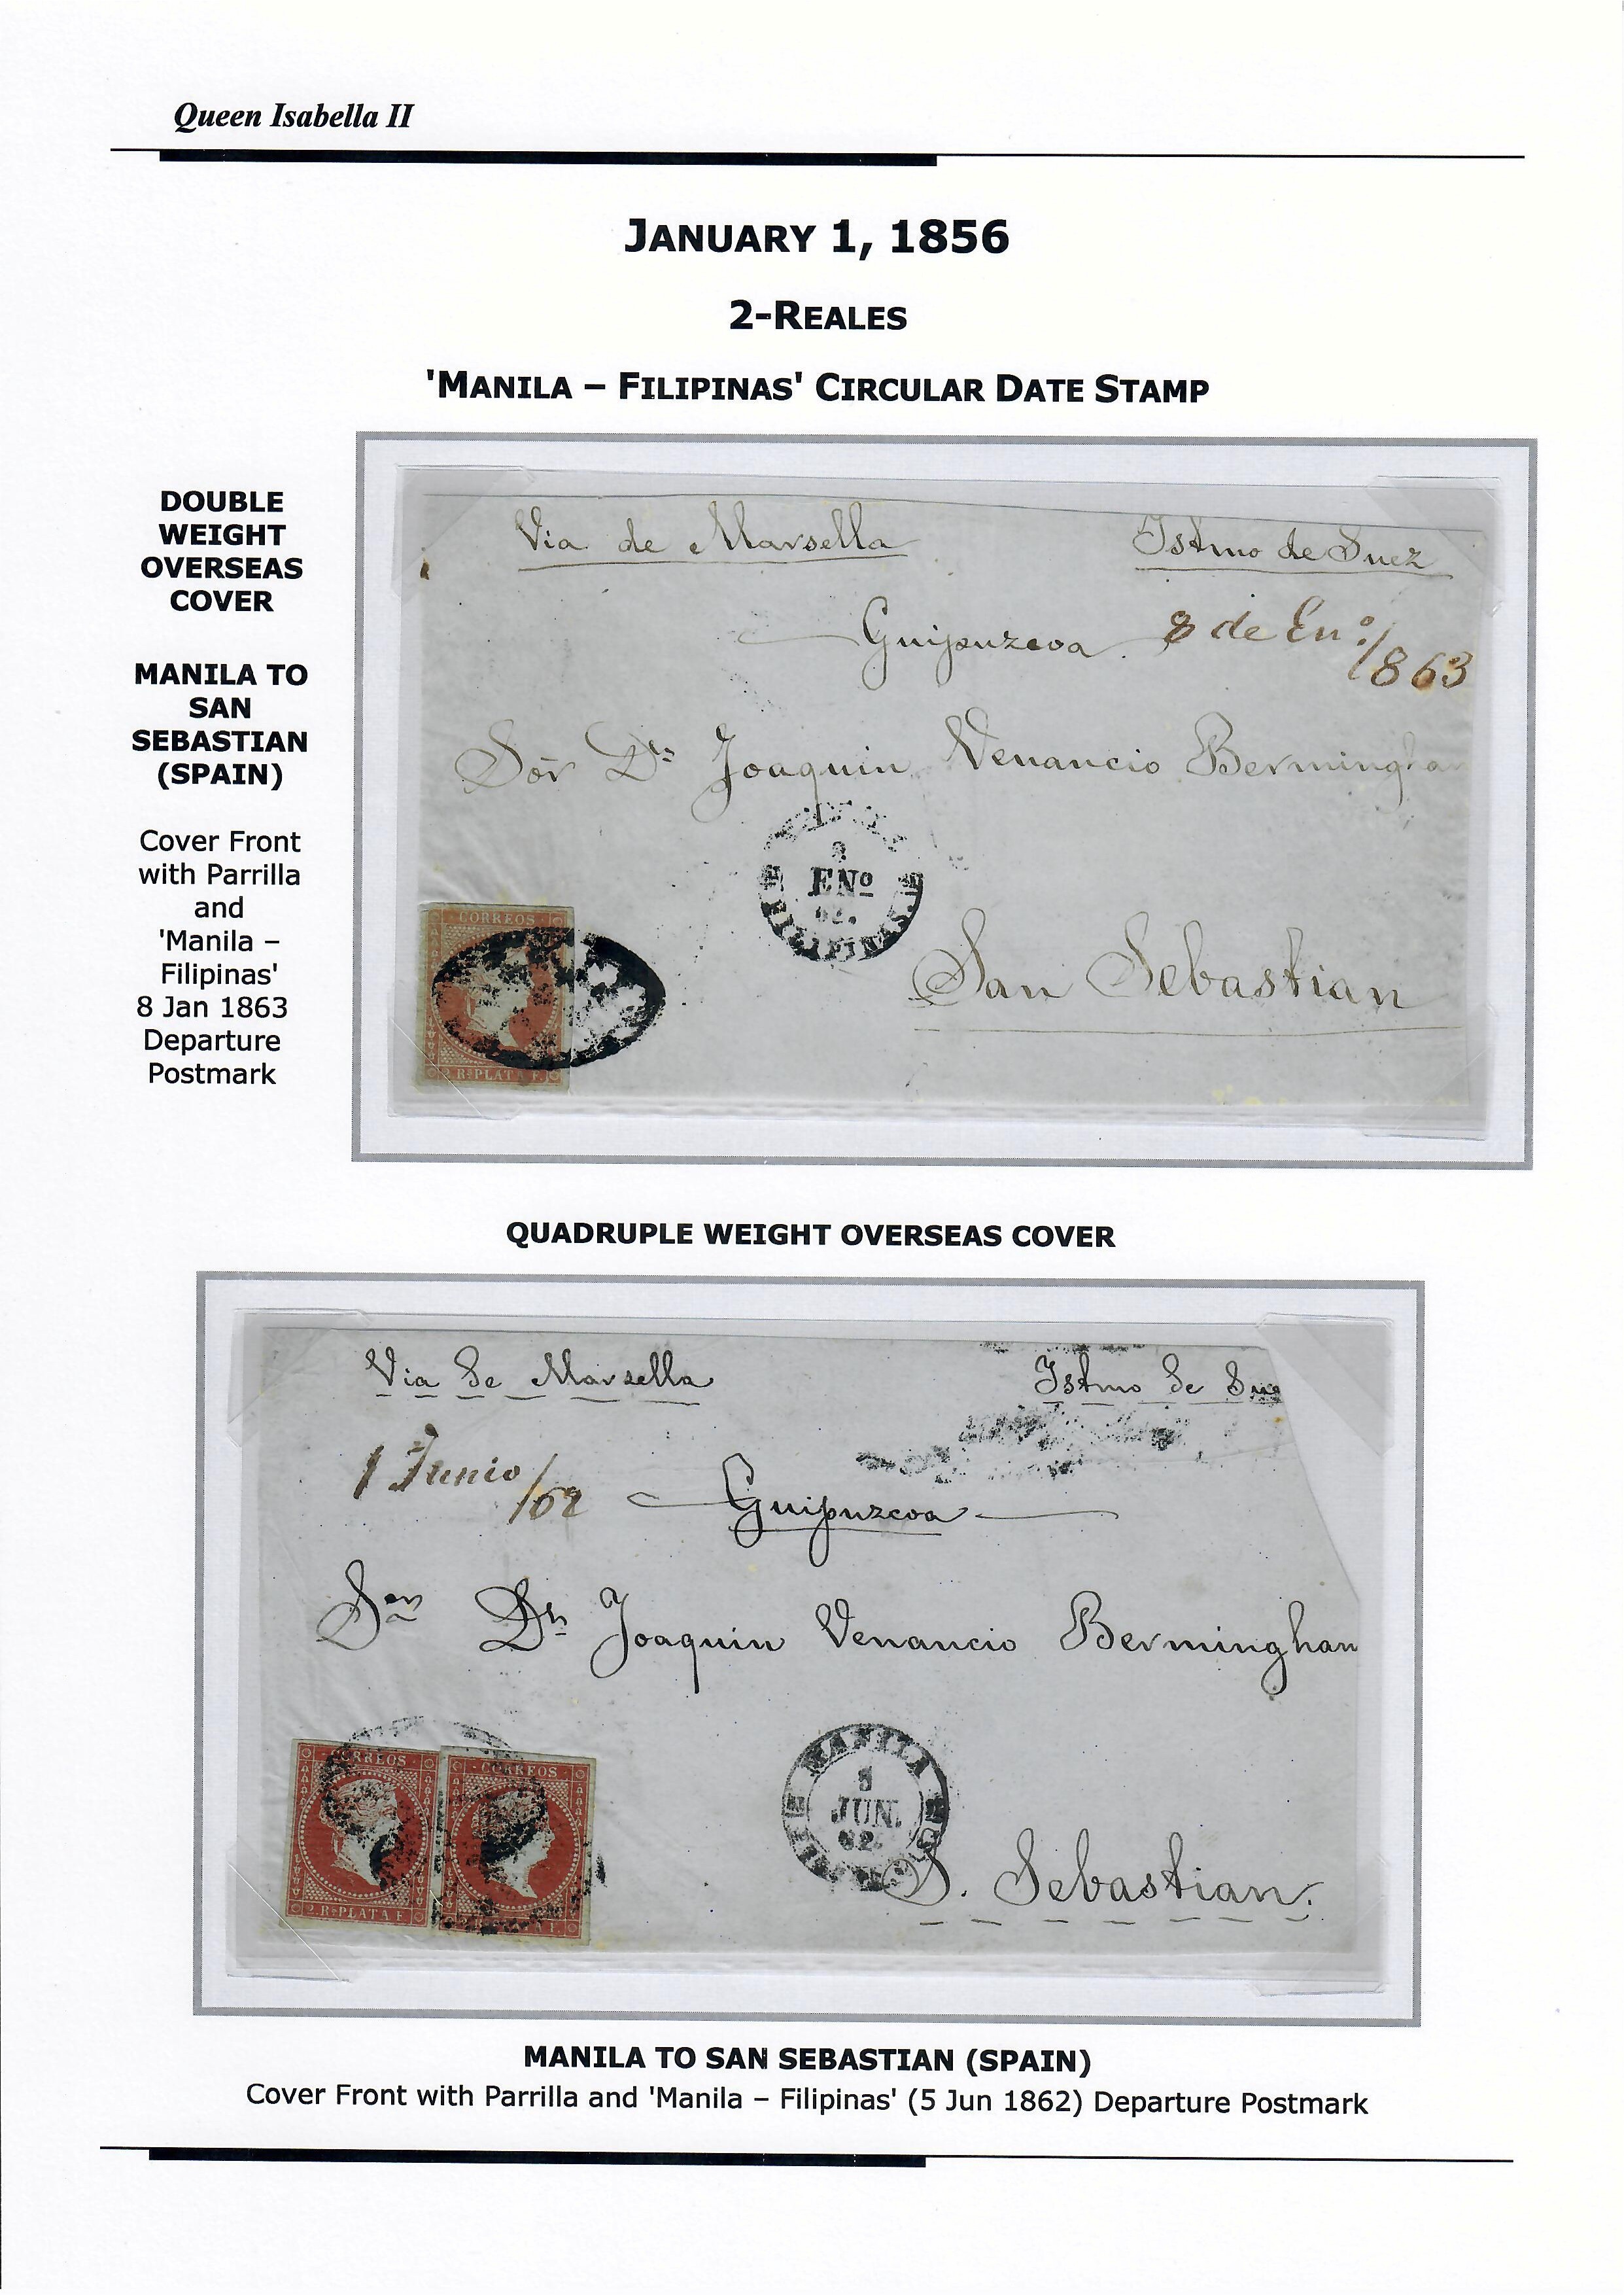 Queen Isabella II
JANUARY 1, 1856
2-REALES
'MANILA – FILIPINAS' CIRCULAR DATE STAMP
DOUBLE
WEIGHT
OVERSEAS
COVER
MANILA TO
SAN
SEBASTIAN
(SPAIN)
Cover Front
with Parrilla
and
'Manila –
Filipinas'
8 Jan 1863
Departure
Postmark
Via de Marsella
Istmo de Suez
Guipuzcoa
8 de Enº/
863
Sōr Dn Joaquin Venancio Bermingha
ENº
FILIPINAS.
San Sebastian
CORREOS
2. Rs PLATA F.
QUADRUPLE WEIGHT OVERSEAS COVER
Via de Marsella
Istmo de Sue
1 Junio/62
Guipuzcoa
Sor Dn Joaquin Venancio Berminghan
MANILA
JUN.
62.
S. Sebastian.
CORREOS
2. Rs PLATA F.
CORREOS
MANILA TO SAN SEBASTIAN (SPAIN)
Cover Front with Parrilla and 'Manila – Filipinas' (5 Jun 1862) Departure Postmark